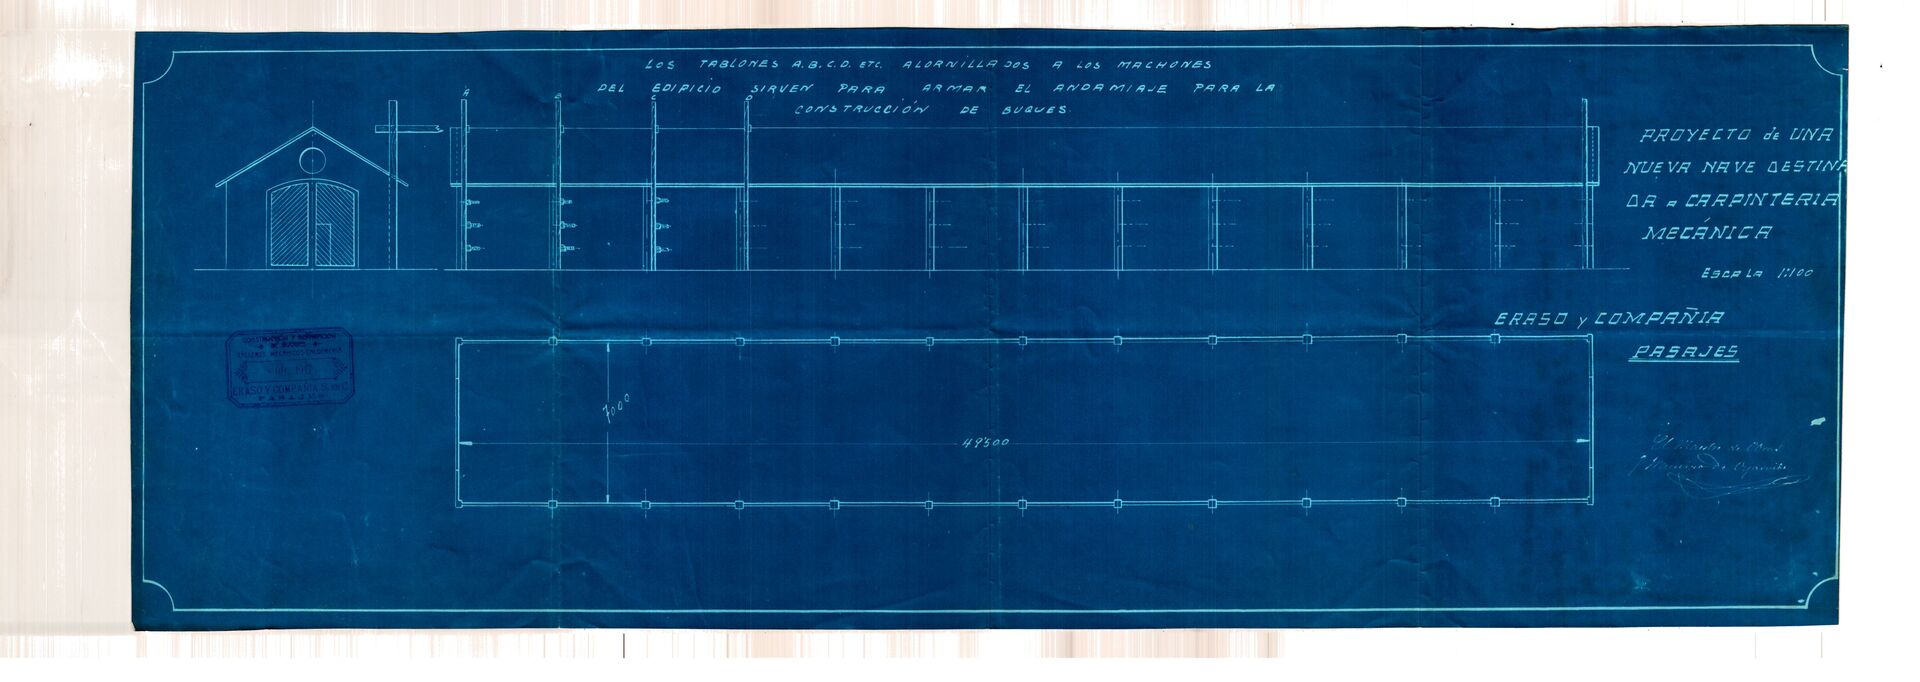 LOS TABLONES A.B.C.D. ETC. ALORNILLADOS A LOS MACHONES
DEL EDIFICIO SIRVEN PARA ARMAR EL ANDAMIAJE PARA LA
CONSTRUCCIÓN DE BUQUES.
A B C D
PROYECTO de UNA
NUEVA NAVE DESTINA
DA a CARPINTERIA
MECÁNICA
ESCALA 1:100
ERASO y COMPAÑIA
PASAJES
CONSTRUCCIÓN Y REPARACIÓN
DE BUQUES
TALLERES MECÁNICOS CALDERERIA
ERASO Y COMPAÑIA S. en C.
PASAJES
7000
49'500
El Maestro de Obras